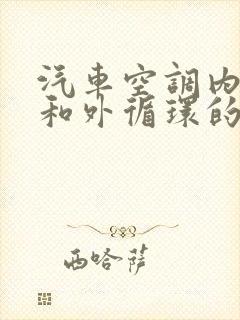 汽車空調内
和外循環的
西哈萨